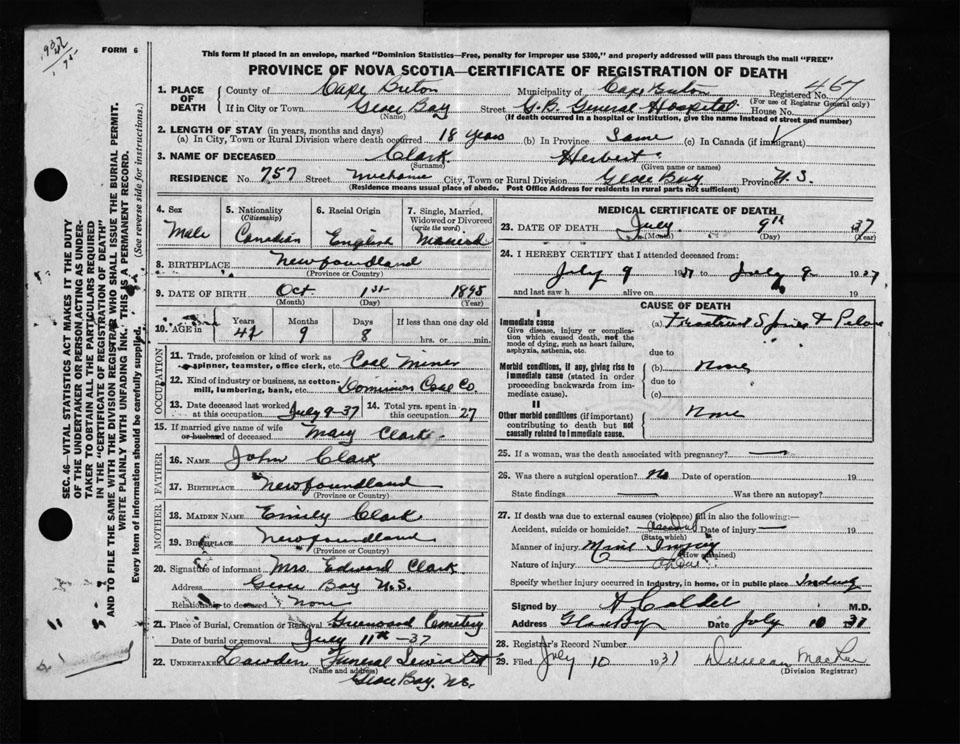 1937
FORM 6
This form if placed in an envelope, marked "Dominion Statistics—Free, penalty for improper use $300," and properly addressed will pass through the mail "FREE"
PROVINCE OF NOVA SCOTIA—CERTIFICATE OF REGISTRATION OF DEATH
1. PLACE OF DEATH County of Cape Breton Municipality of Cape Breton Registered No. 467
(For use of Registrar General only)
If in City or Town Glace Bay Street G.B. General Hospital House No.
(Name) (If death occurred in a hospital or institution, give the name instead of street and number)
2. LENGTH OF STAY (in years, months and days)
(a) In City, Town or Rural Division where death occurred 18 years (b) In Province Same (c) In Canada (if immigrant)
3. NAME OF DECEASED Clark Herbert
(Surname) (Given name or names)
RESIDENCE No. 757 Street City, Town or Rural Division Glace Bay Province N.S.
(Residence means usual place of abode. Post Office Address for residents in rural parts not sufficient)
4. Sex Male
5. Nationality (Citizenship) Canadian
6. Racial Origin English
7. Single, Married, Widowed or Divorced (write the word) Married
8. BIRTHPLACE Newfoundland
(Province or Country)
9. DATE OF BIRTH Oct 1st 1895
(Month) (Day) (Year)
10. AGE in Years 42 Months 9 Days 8 If less than one day old hrs. or min.
OCCUPATION
11. Trade, profession or kind of work as spinner, teamster, office clerk, etc. Coal Miner
12. Kind of industry or business, as cotton-mill, lumbering, bank, etc. Dominion Coal Co.
13. Date deceased last worked at this occupation July 9-37
14. Total yrs. spent in this occupation 27
15. If married give name of wife or husband of deceased Mary Clark
FATHER
16. NAME John Clark
17. BIRTHPLACE Newfoundland
(Province or Country)
MOTHER
18. MAIDEN NAME Emily Clark
19. BIRTHPLACE Newfoundland
(Province or Country)
20. Signature of informant Mrs. Edward Clark
Address Glace Bay N.S.
Relationship to deceased None
21. Place of Burial, Cremation or Removal Greenwood Cemetery
Date of burial or removal July 11th -37
22. UNDERTAKER Funeral
(Name and address)
Glace Bay. N.S.
MEDICAL CERTIFICATE OF DEATH
23. DATE OF DEATH July 9th 37
(Month) (Day) (Year)
24. I HEREBY CERTIFY that I attended deceased from:
July 9 1937 to July 9 1937
and last saw h alive on 19
CAUSE OF DEATH
I
Immediate cause (a) Fractured Spine & Pelvis
Give disease, injury or complication which caused death, not the mode of dying, such as heart failure, asphyxia, asthenia, etc.
due to
Morbid conditions, if any, giving rise to immediate cause (stated in order proceeding backwards from immediate cause). (b) None
due to
(c)
II
Other morbid conditions (if important) contributing to death but not causally related to immediate cause. None
25. If a woman, was the death associated with pregnancy? —
26. Was there a surgical operation? No Date of operation 19
State findings — Was there an autopsy?
27. If death was due to external causes (violence) fill in also the following:—
Accident, suicide or homicide? Accident Date of injury — 19
(State which)
Manner of injury Mine Injury
(How sustained)
Nature of injury above
Specify whether injury occurred in industry, in home, or in public place Industry
Signed by M.D.
Address Glace Bay Date July 10 37
28. Registrar's Record Number
29. Filed July 10 1937 Duncan
(Division Registrar)
SEC. 46—VITAL STATISTICS ACT MAKES IT THE DUTY
OF THE UNDERTAKER OR PERSON ACTING AS UNDER-
TAKER TO OBTAIN ALL THE PARTICULARS REQUIRED
IN THE "CERTIFICATE OF REGISTRATION OF DEATH"
AND TO FILE THE SAME WITH THE DIVISION REGISTRAR WHO SHALL ISSUE THE BURIAL PERMIT.
WRITE PLAINLY WITH UNFADING INK. THIS IS A PERMANENT RECORD.
Every item of information should be carefully supplied. (See reverse side for instructions.)